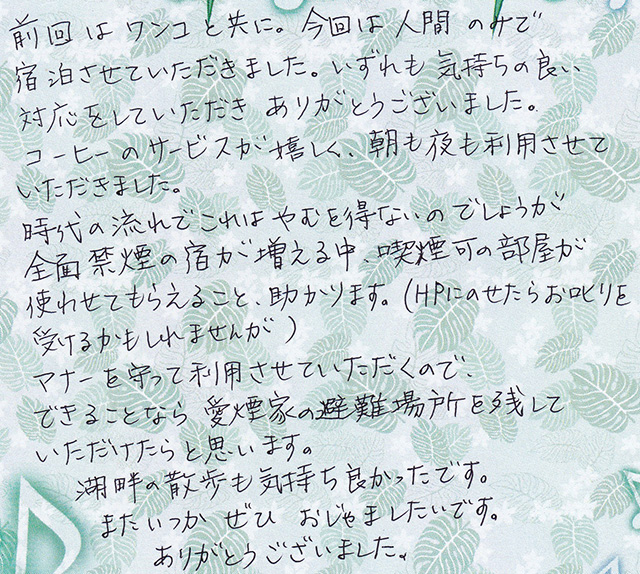 前回はワンコと共に。今回は人間のみで
宿泊させていただきました。いずれも気持ちの良い
対応をしていただきありがとうございました。
コーヒーのサービスが嬉しく、朝も夜も利用させて
いただきました。
時代の流れでこれはやむを得ないのでしょうが
全面禁煙の宿が増える中、喫煙可の部屋が
使わせてもらえること、助かります。(HPにのせたらお叱りを
受けるかもしれませんが)
マナーを守って利用させていただくので、
できることなら愛煙家の避難場所を残して
いただけたらと思います。
湖畔の散歩も気持ち良かったです。
またいつか ぜひ おじゃましたいです。
ありがとうございました。